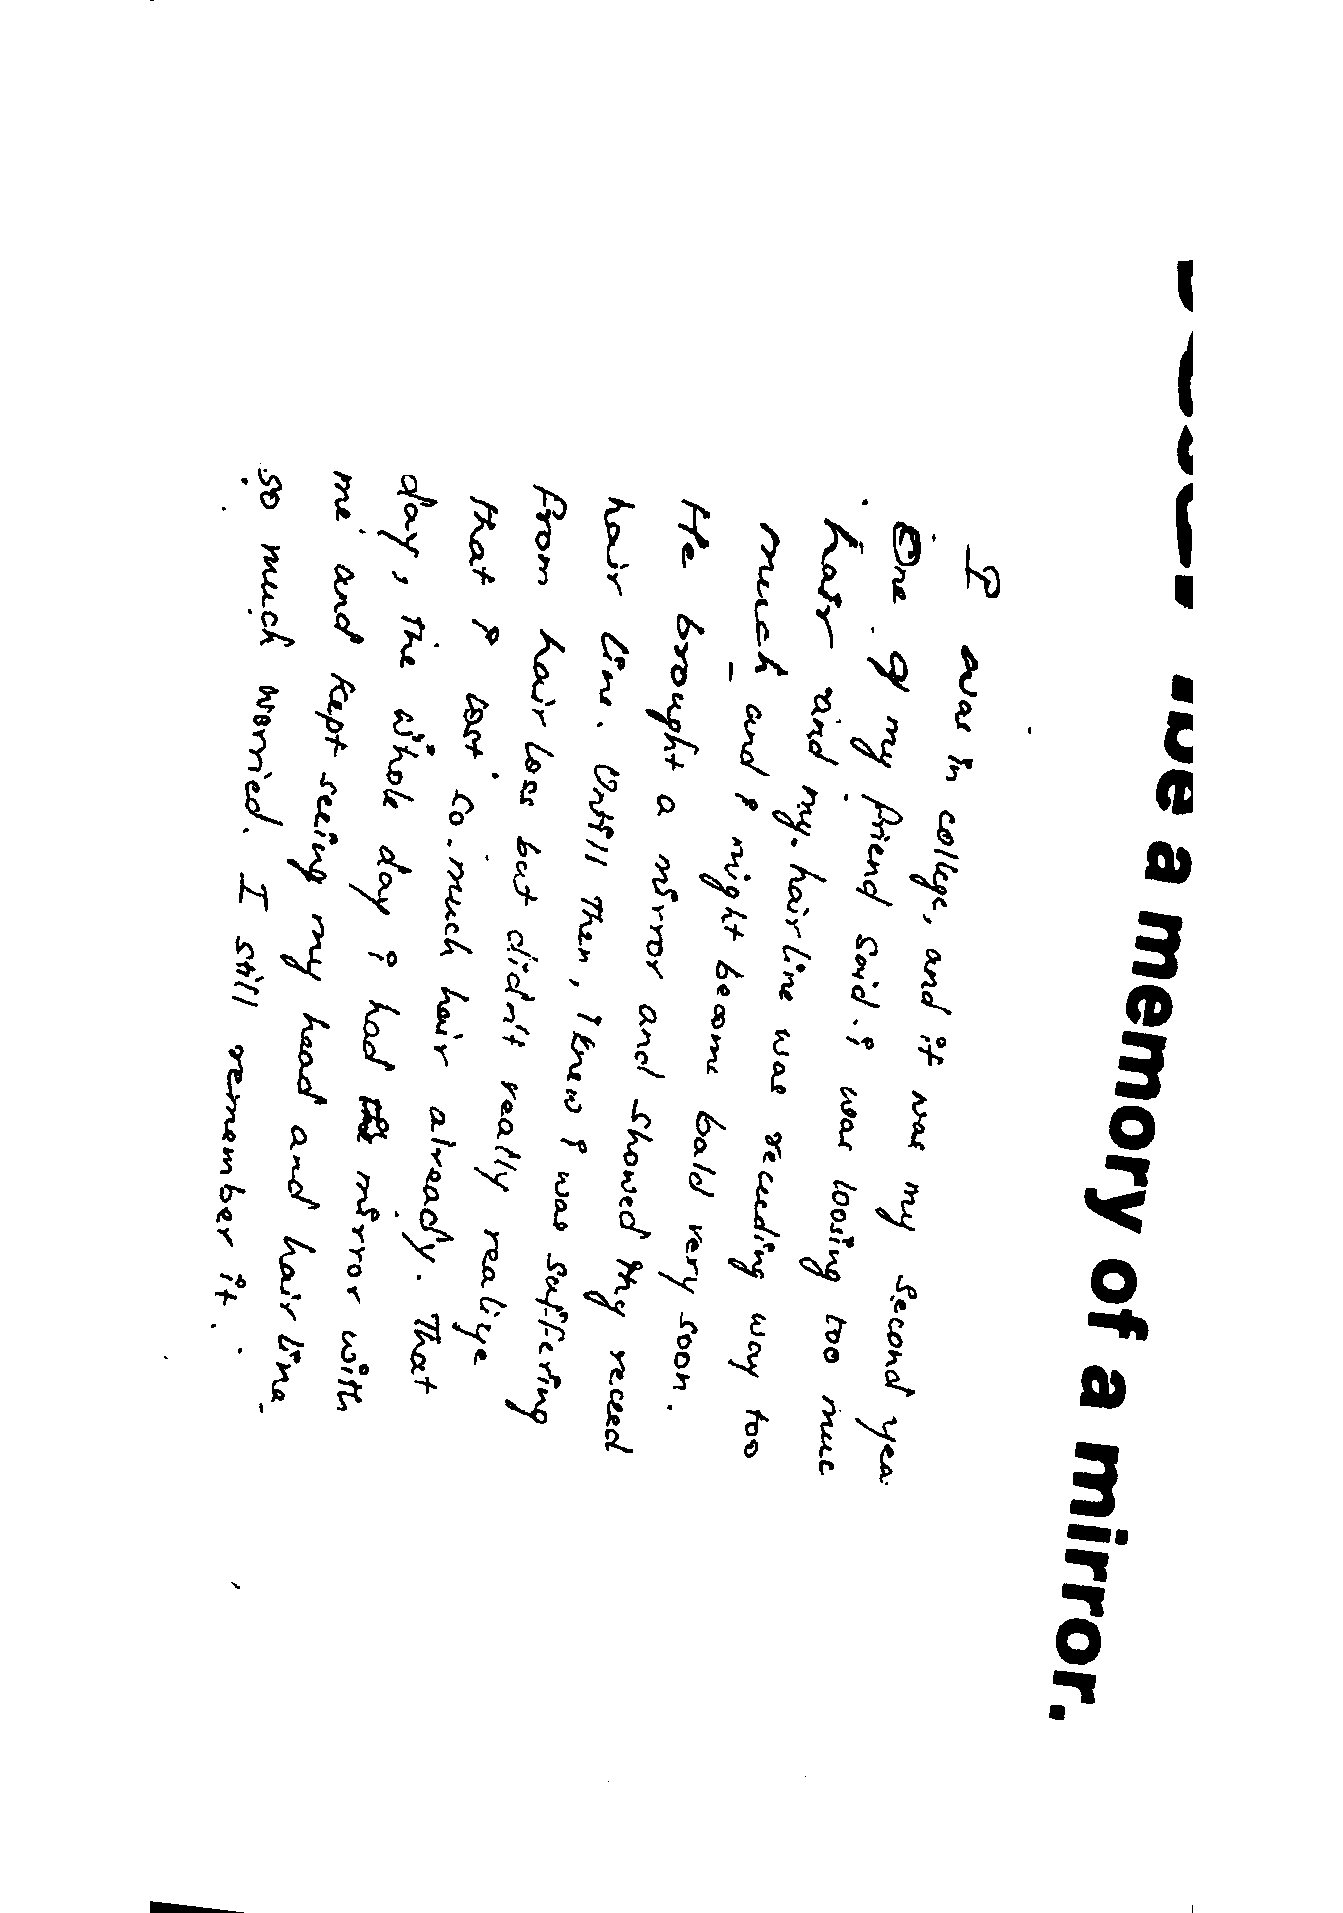 Describe a memory of a mirror.
I was in college, and it was my second yea
One of my friend said i was loosing too muc
hair and my hairline was receeding way too
much and i might become bald very soon.
He brought a mirror and showed my receed
hair line. Untill then, i knew i was suffering
from hair loss but didn't really realize
that i lost so much hair already. That
day, the whole day i had the mirror with
me and kept seeing my head and hair line
so much worried. I still remember it.